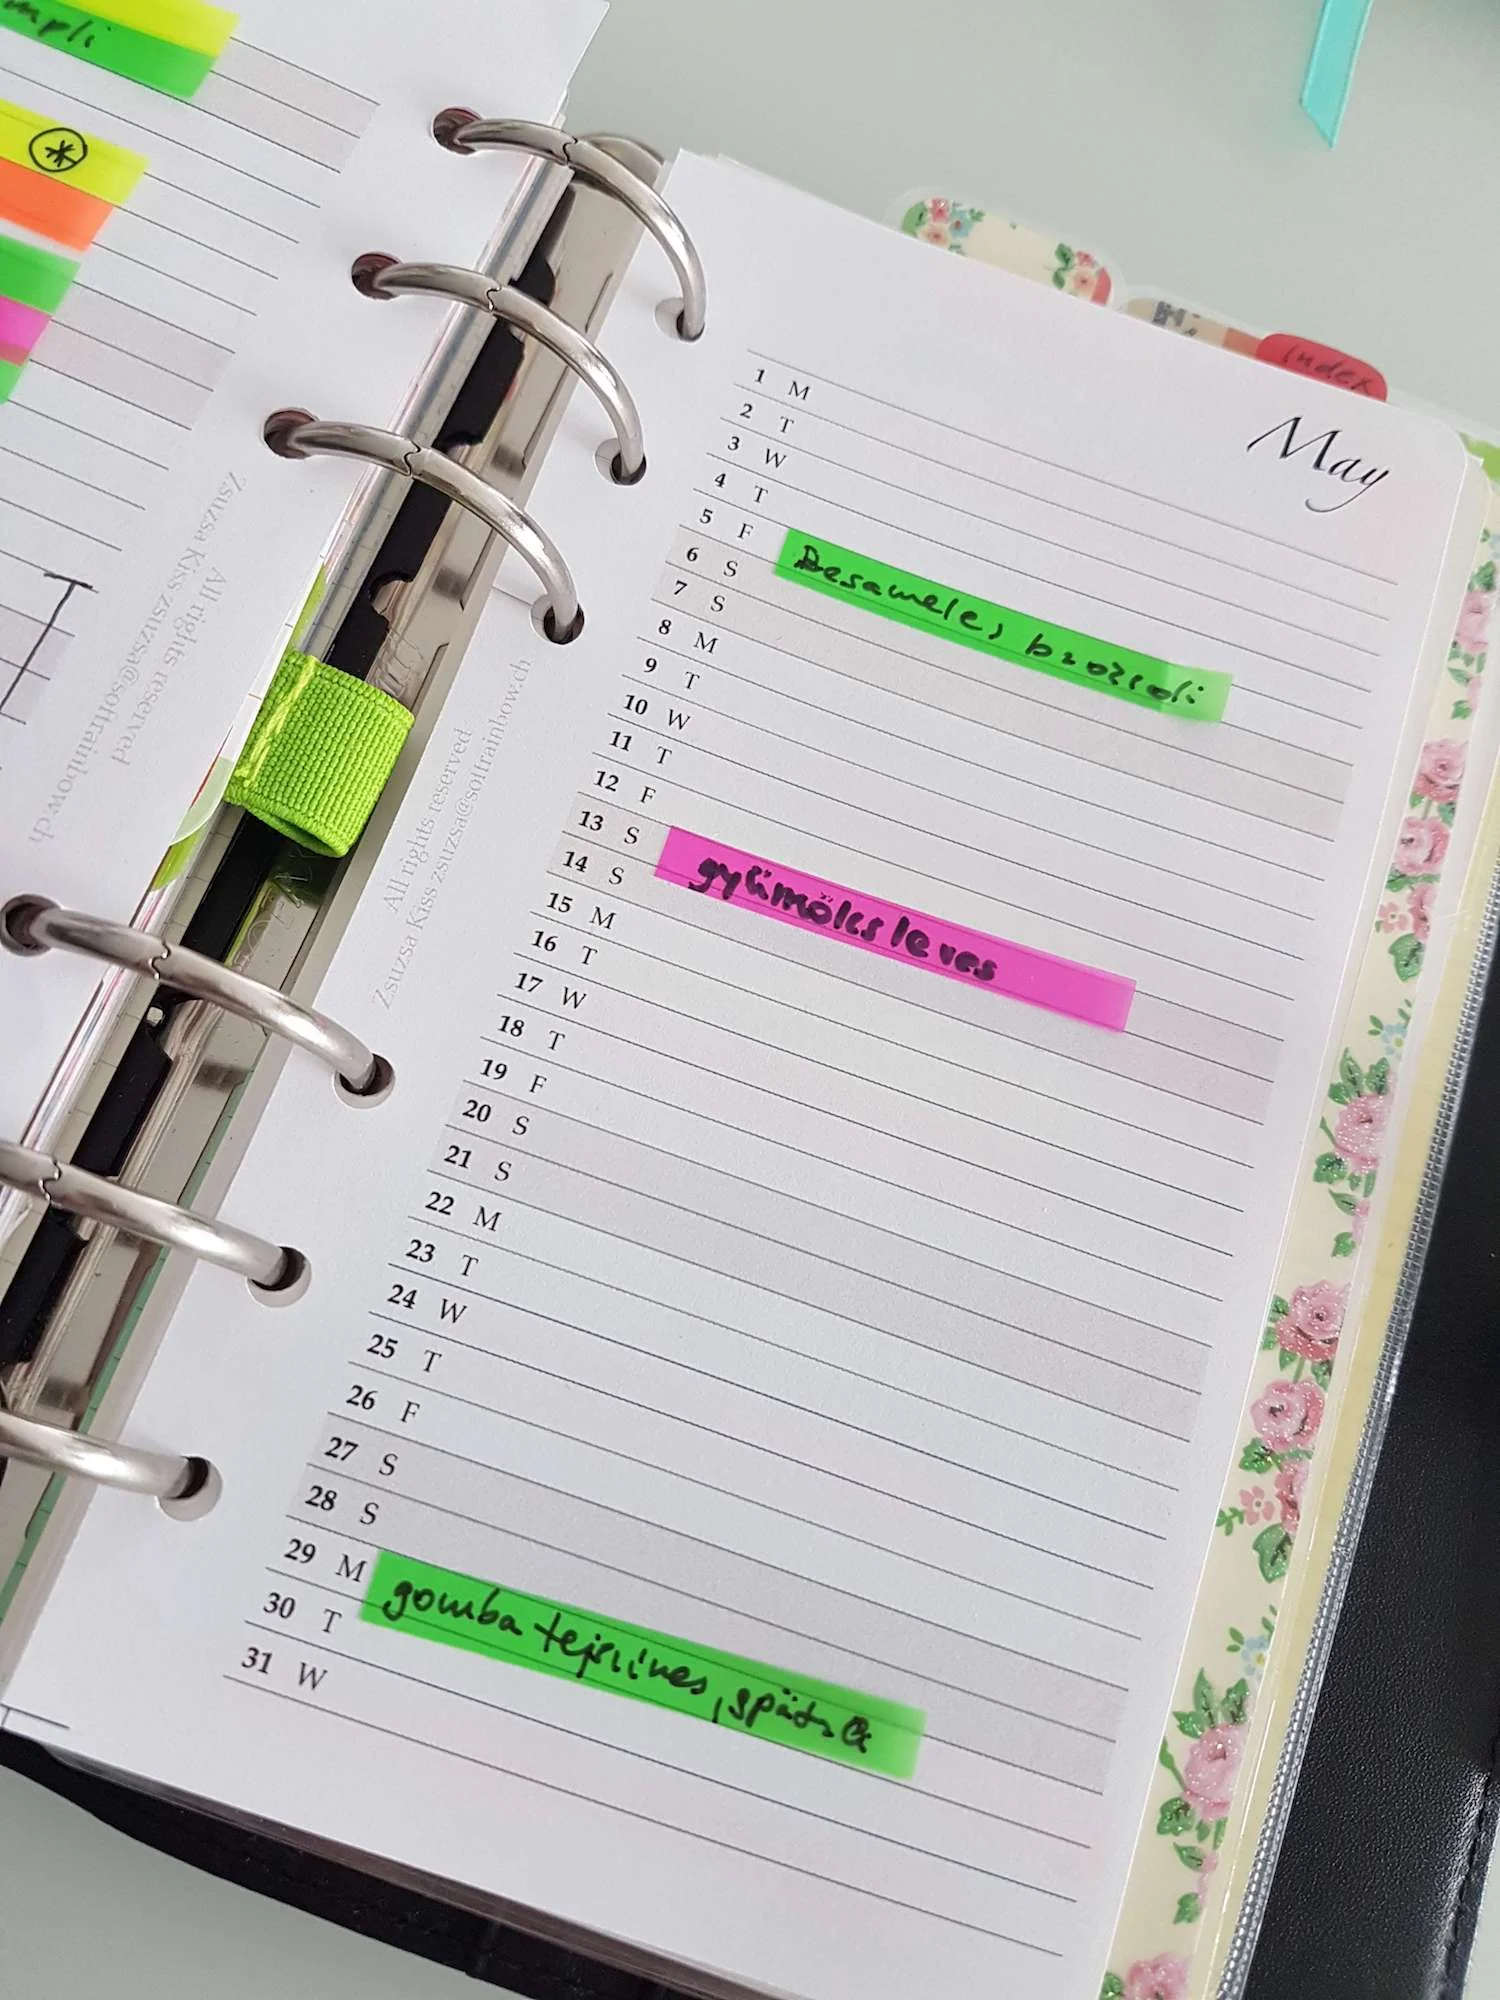 mpli
All rights reserved
Zsuzsa Kiss zsuzsa@softrainbow.ch
index
May
1 M
2 T
3 W
4 T
5 F Besameles brokkoli
6 S
7 S
8 M
9 T
10 W
11 T
12 F
13 S gyümölcs leves
14 S
15 M
16 T
17 W
18 T
19 F
20 S
21 S
22 M
23 T
24 W
25 T
26 F
27 S
28 S
29 M gomba tejszines, spätzle
30 T
31 W
All rights reserved
Zsuzsa Kiss zsuzsa@softrainbow.ch